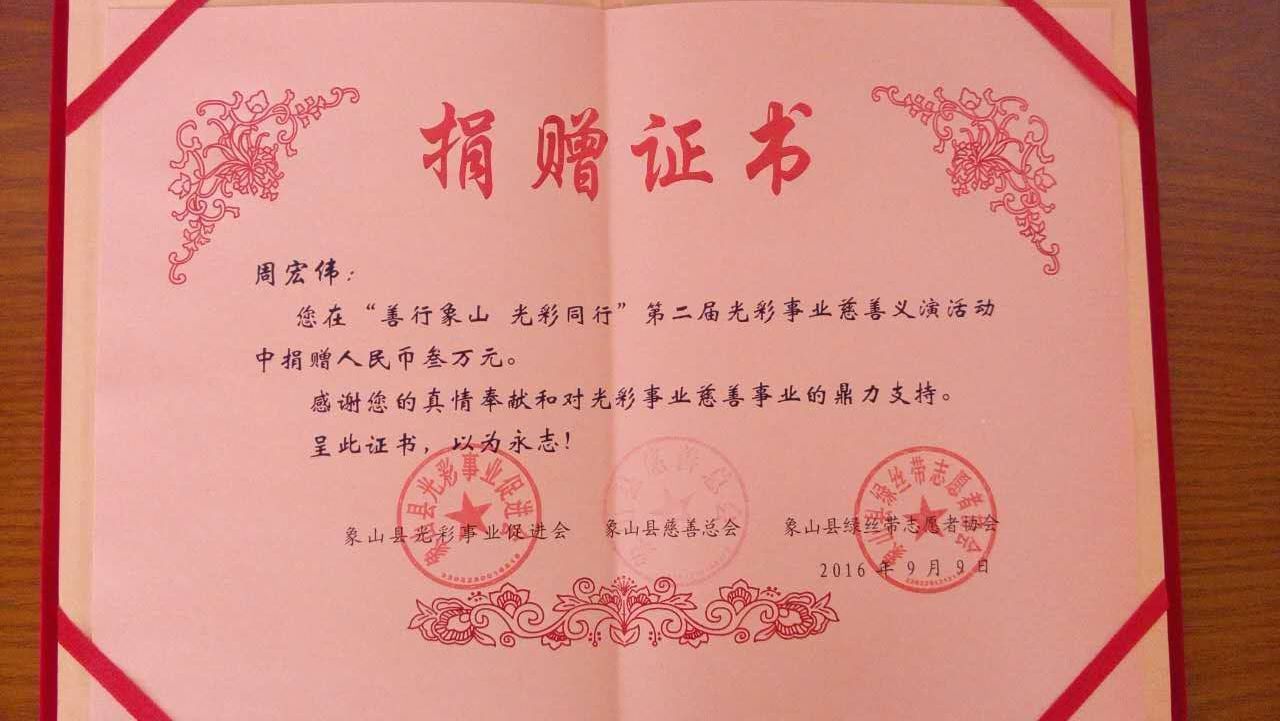 捐赠证书
周宏伟：
您在“善行象山 光彩同行”第二届光彩事业慈善义演活动
中捐赠人民币叁万元。
感谢您的真情奉献和对光彩事业慈善事业的鼎力支持。
呈此证书，以为永志！
象山县光彩事业促进会 象山县慈善总会 象山县绿丝带志愿者协会
2016年9月9日
象山县光彩事业促进会
象山县慈善总会
象山县绿丝带志愿者协会